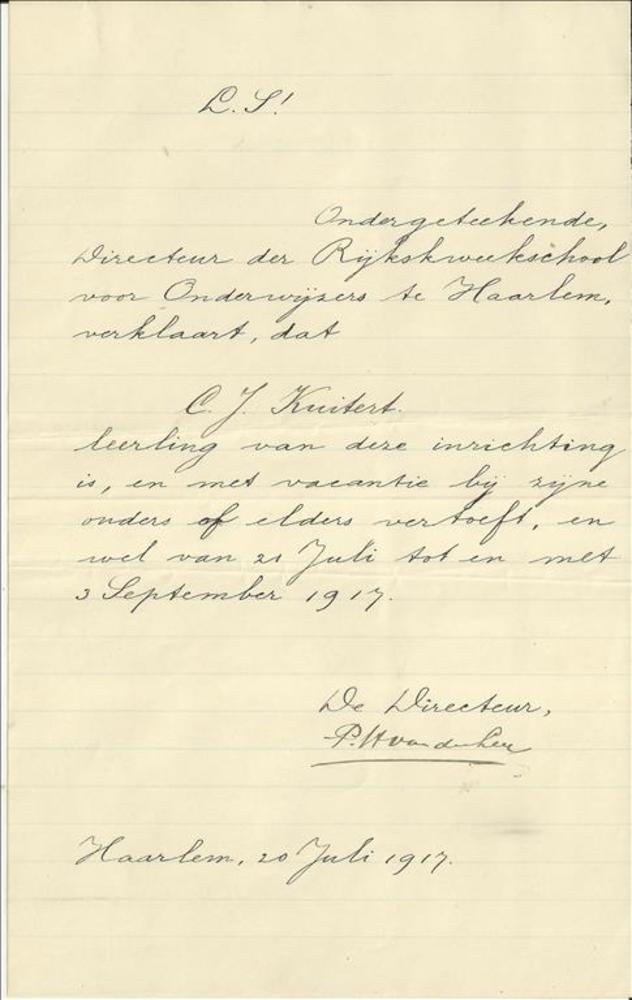 L. S!
Ondergeteekende,
Directeur der Rijkskweekschool
voor Onderwijzers te Haarlem,
verklaart, dat
C. J. Kuitert.
leerling van deze inrichting
is, en met vacantie bij zijne
ouders of elders vertoeft, en
wel van 21 Juli tot en met
3 September 1917.
De Directeur,
P. H van der
Haarlem, 20 Juli 1917.